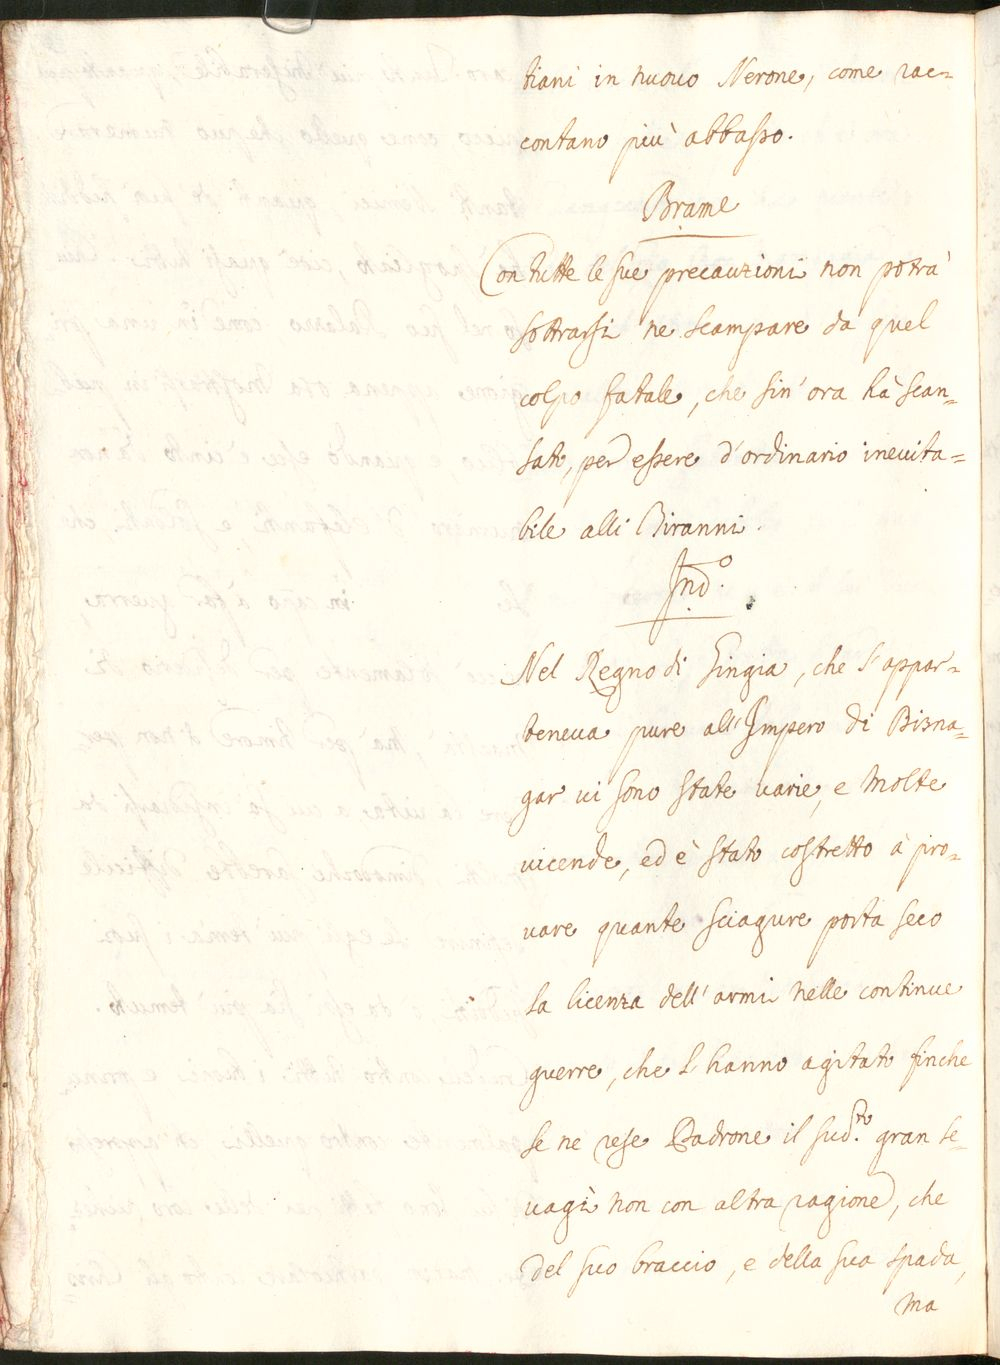 tiani in nuovo Nerone, come rac=
contano più abbasso.
Brame
Con tutte le sue precauzioni non potrà
sottrarsi ne scampare da quel
colpo fatale, che sin' ora hà scan=
sato, per essere d'ordinario ineuita=
bile alli Tiranni.
Ind.º
Nel Regno di Gingia, che s'appar=
teneua pure all'Impero di Bisna=
gar ui sono state uarie, e molte
uicende, ed è stato costretto à pro=
uare quante sciagure porta seco
la licenza dell'armi nelle continue
guerre, che l'hanno agitato finche
se ne rese Padrone il sud.to gran se=
uagì non con altra ragione, che
del suo braccio, e della sua spada,
ma